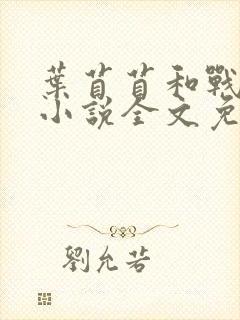 葉苜苜和戰
小說全文免
劉允若